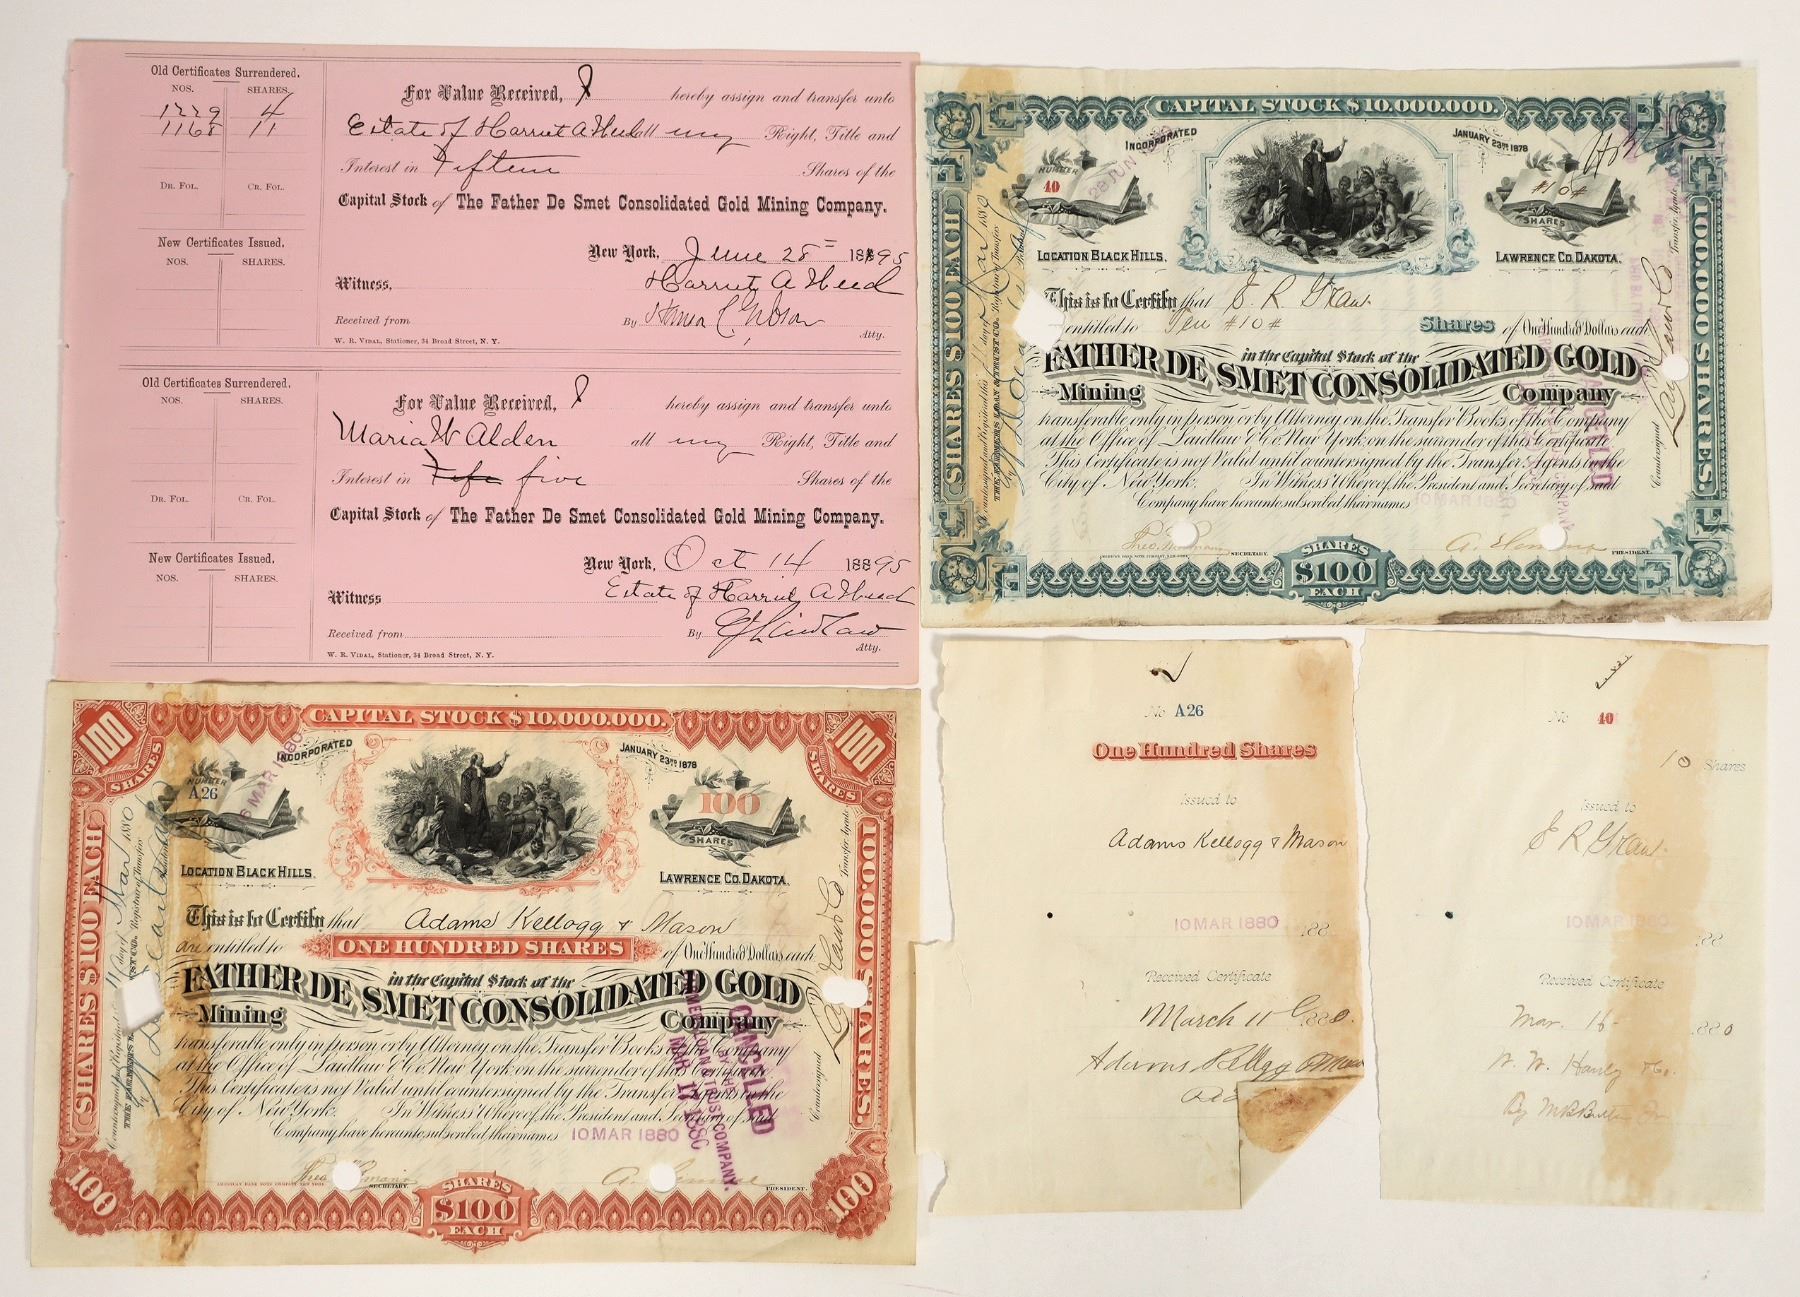 Old Certificates Surrendered.
NOS. SHARES.
1229 4
1168 11
DR. FOL. CR. FOL.
New Certificates Issued.
NOS. SHARES.
For Value Received, I hereby assign and transfer unto
Estate of Harriet A Heed all my Right, Title and
Interest in Fifteen Shares of the
Capital Stock of The Father De Smet Consolidated Gold Mining Company.
New York, June 28th 1895
Witness, Harriet A Heed
Received from By Gibson Atty.
W. R. VIDAL, Stationer, 34 Broad Street, N. Y.
Old Certificates Surrendered.
NOS. SHARES.
DR. FOL. CR. FOL.
New Certificates Issued.
NOS. SHARES.
For Value Received, I hereby assign and transfer unto
Maria W Alden all my Right, Title and
Interest in five Shares of the
Capital Stock of The Father De Smet Consolidated Gold Mining Company.
New York, Oct 14 1895
Witness Estate of Harriet A Heed
Received from By Laidlaw Atty.
W. R. VIDAL, Stationer, 34 Broad Street, N. Y.
CAPITAL STOCK $10.000.000.
INCORPORATED JANUARY 23RD 1878
NUMBER
40
#10#
SHARES
LOCATION BLACK HILLS. LAWRENCE CO. DAKOTA.
This is to Certify that E R Grant
entitled to Ten #10# Shares of One Hundred Dollars each
in the Capital Stock of the
FATHER DE SMET CONSOLIDATED GOLD
Mining Company
transferable only in person or by Attorney on the Transfer Books of the Company
at the Office of Laidlaw & Co New York on the surrender of this Certificate
This Certificate is not Valid until countersigned by the Transfer Agents in the
City of New York. In Witness Whereof the President and Secretary of said
Company have hereunto subscribed their names
10 MAR 1880
SECRETARY. PRESIDENT.
AMERICAN BANK NOTE COMPANY, NEW YORK
SHARES
$100
EACH
SHARES $100 EACH
100.000 SHARES.
Countersigned Laidlaw & Co Transfer Agents
CANCELED
CAPITAL STOCK $10.000.000.
100 SHARES
100 SHARES
INCORPORATED JANUARY 23RD 1878
NUMBER
A26
100
SHARES
LOCATION BLACK HILLS. LAWRENCE CO. DAKOTA.
This is to Certify that Adams Kellogg & Mason
are entitled to ONE HUNDRED SHARES of One Hundred Dollars each
in the Capital Stock of the
FATHER DE SMET CONSOLIDATED GOLD
Mining Company
transferable only in person or by Attorney on the Transfer Books of the Company
at the Office of Laidlaw & Co New York on the surrender of this Certificate
This Certificate is not Valid until countersigned by the Transfer Agents in the
City of New York. In Witness Whereof the President and Secretary of said
Company have hereunto subscribed their names
10 MAR 1880
SECRETARY. PRESIDENT.
AMERICAN BANK NOTE COMPANY NEW YORK
SHARES
$100
EACH
100
100
SHARES $100 EACH
100.000 SHARES
Countersigned Laidlaw & Co Transfer Agents
CANCELED
BY THE
AMER. LOAN & TRUST COMPANY.
MAR 17 1880
No A26
One Hundred Shares
issued to
Adams Kellogg & Mason
10 MAR 1880
188
Received Certificate
March 11 1880
Adams Kellogg & Mason
No 40
10 Shares
issued to
E R Grant
10 MAR 1880
188
Received Certificate
Mar. 16 1880